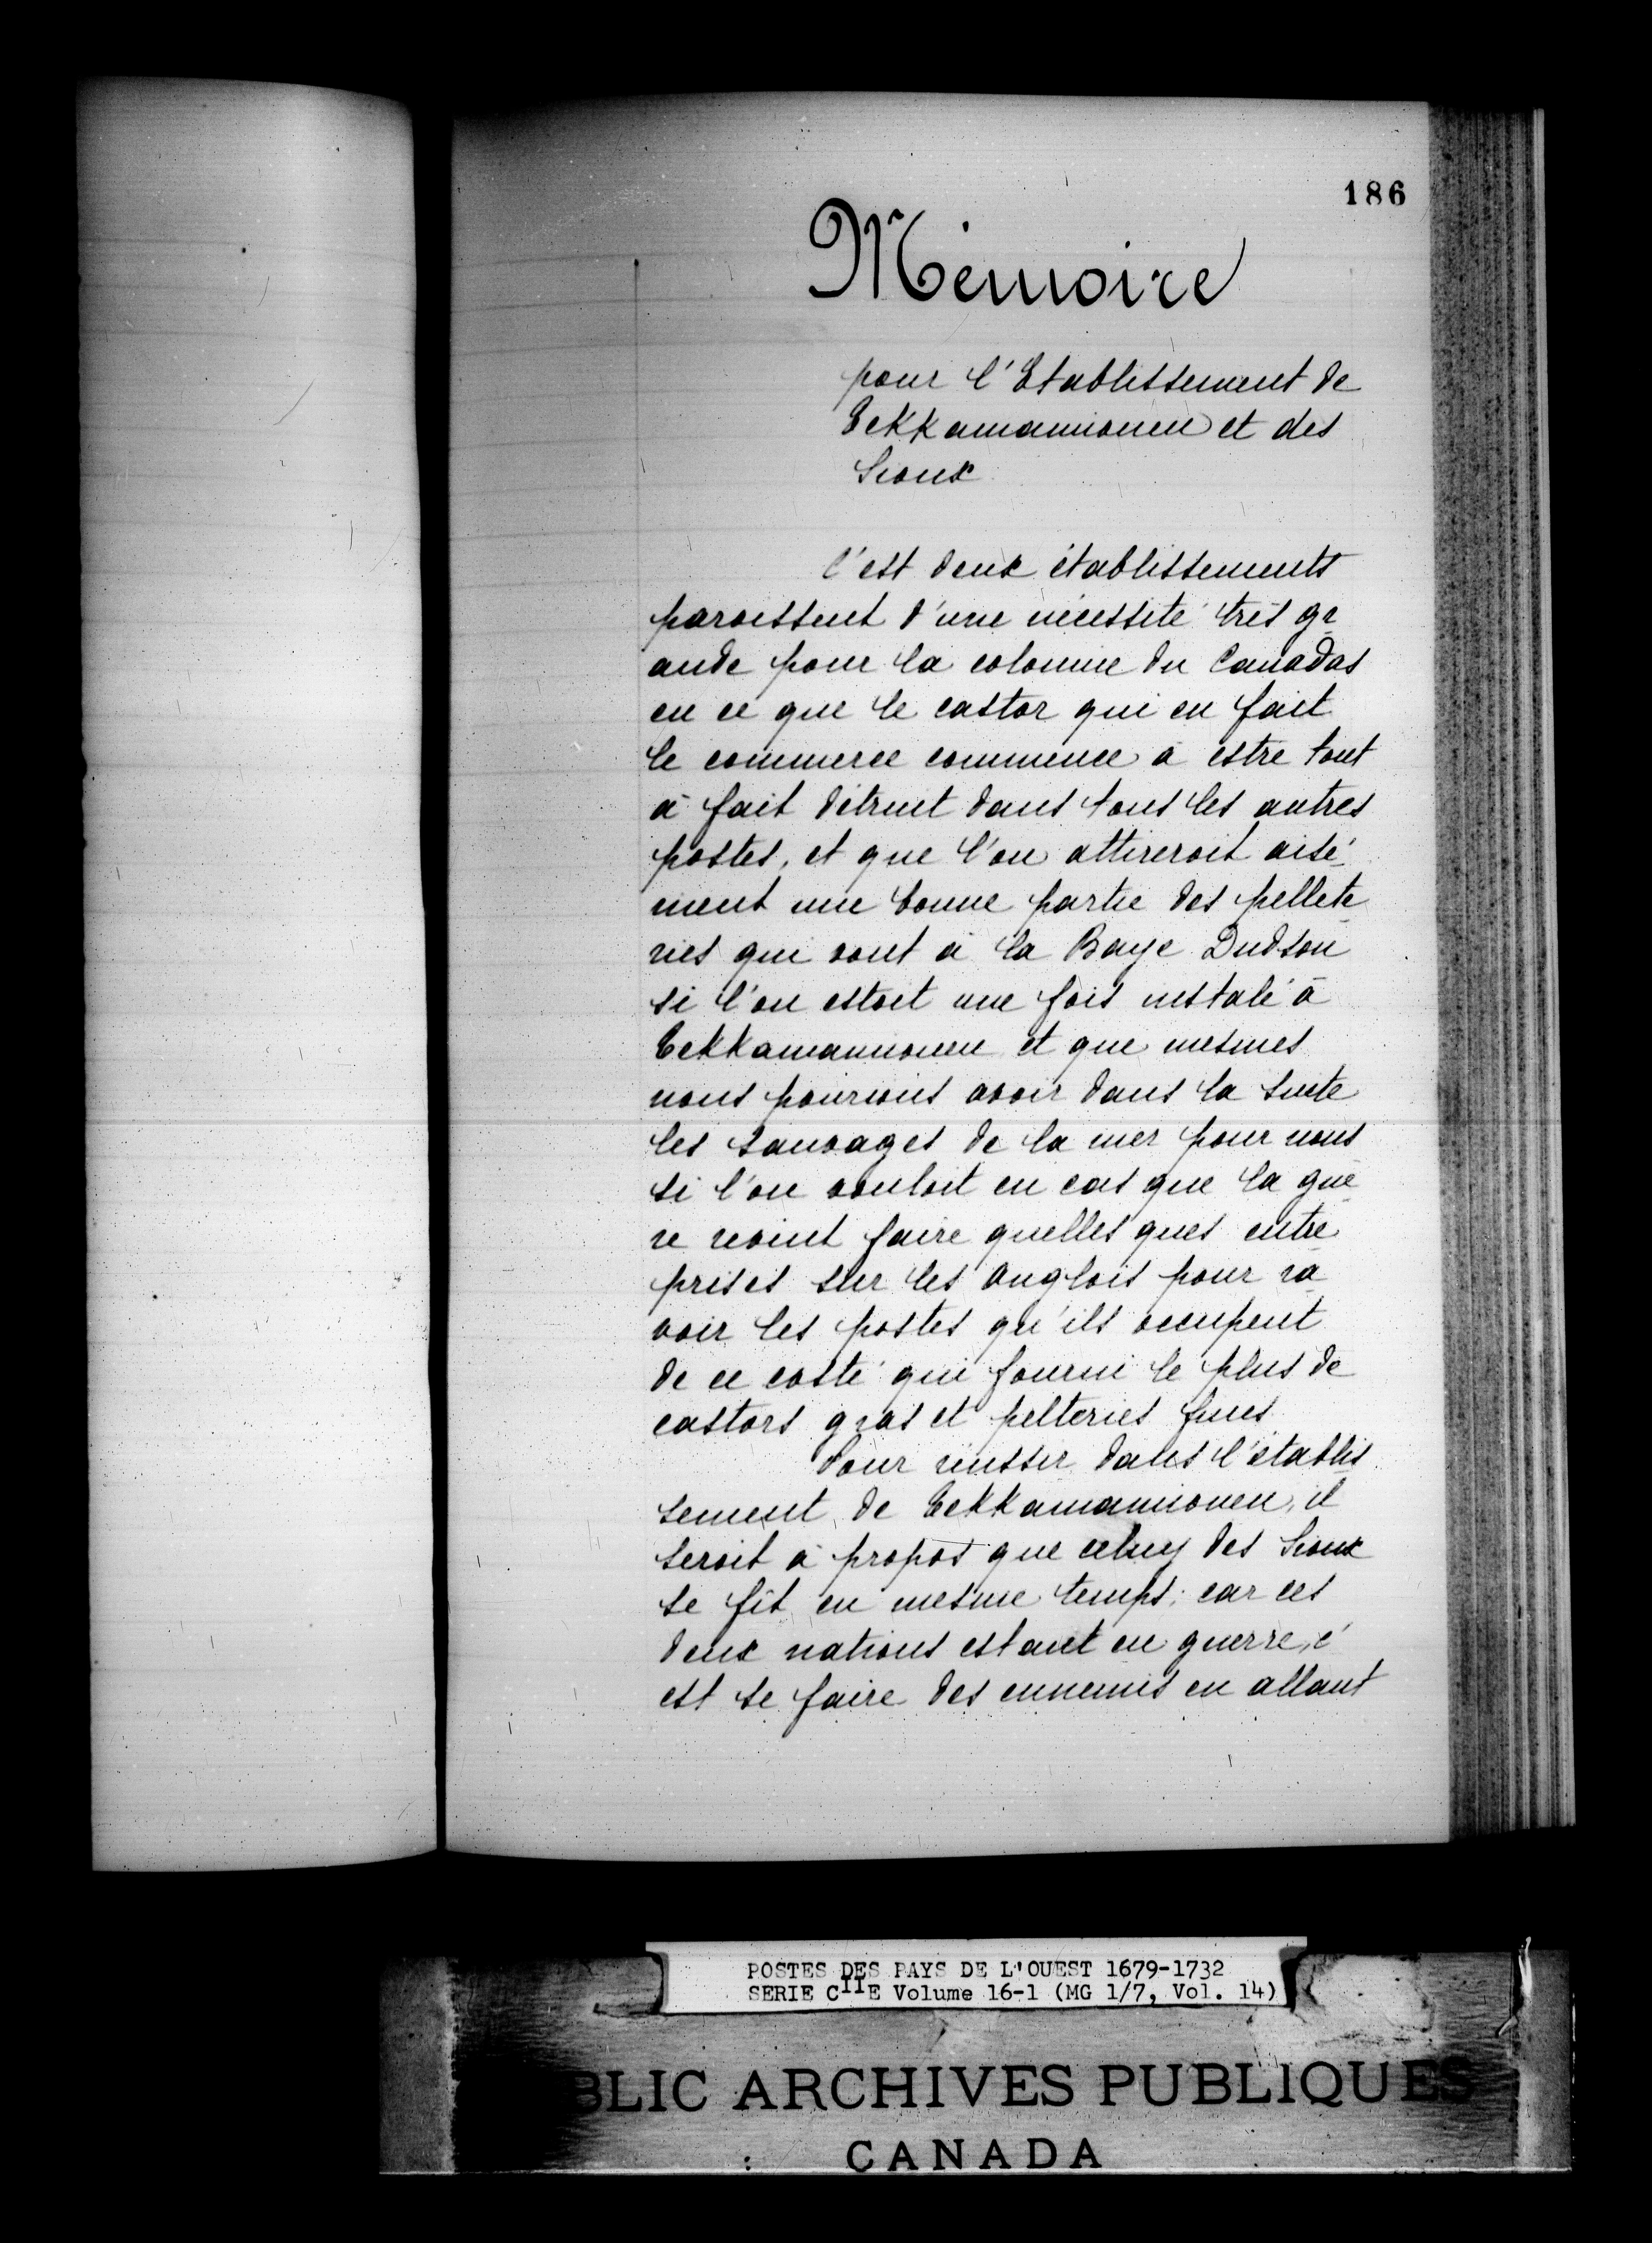 186
Mémoire
pour l'Etablissement de
Tekkamamiouen et des
Sioux
C'est deux établissements
paroissent d'une nécessité très gr
ande pour la colonnie du Canadas
en ce que le castor qui en fait
le commerce commence à estre tout
à fait détruit dans tous les autres
postes, et que l'on attireroit aisé-
ment une bonne partie des pellete
ries qui vont à la Baye Dudson
si l'on estoit une fois instalé à
Tekkamamiouen et que mesmes
nous pourions avoir dans la suite
les sauvages de la mer pour nous
si l'on vouloit en cas que la gue
re revint faire quelles ques entre
prises sur les Anglois pour ra
voir les postes qu'ils occupent
de ce costé qui fourni le plus de
castors gras et pelteries fines
Pour réussir dans l'établis
sement de Tekkamamiouen, il
seroit à propos que celuy des Sioux
se fît en mesme temps; car ces
deux nations estant en guerre, c'
est se faire des ennemis en allant
POSTES DES PAYS DE L'OUEST 1679-1732
SERIE C11E Volume 16-1 (MG 1/7, Vol. 14)
BLIC ARCHIVES PUBLIQUES
CANADA